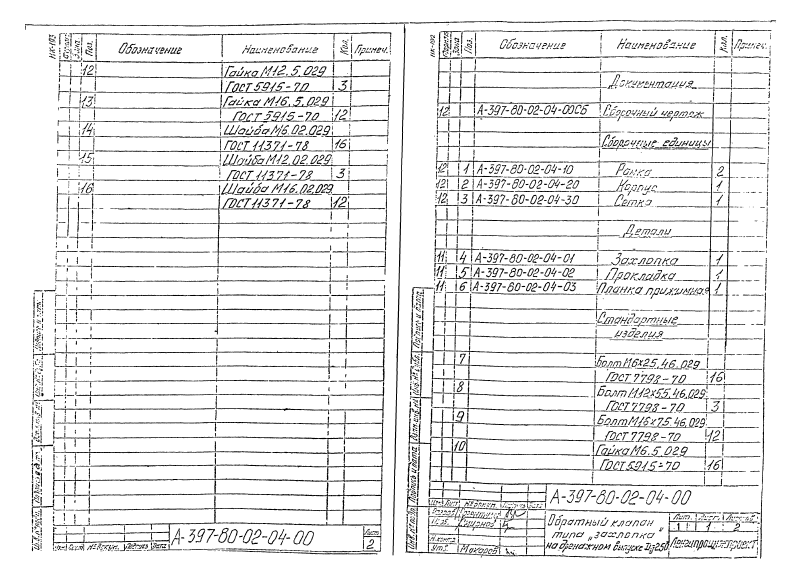 НК-103
Формат
Зона
Поз.
Обозначение
Наименование
Кол.
Примеч.
12 Гайка М12.5.029
ГОСТ 5915-70 3
13 Гайка М16.5.029
ГОСТ 5915-70 12
14 Шайба М6.02.029
ГОСТ 11371-78 16
15 Шайба М12.02.029
ГОСТ 11371-78 3
16 Шайба М16.02.029
ГОСТ 11371-78 12
А-397-80-02-04-00
Лист
2
НК-102
Формат
Зона
Поз.
Обозначение
Наименование
Кол.
Примеч.
Документация
12 А-397-80-02-04-00СБ Сборочный чертеж
Сборочные единицы
12 1 А-397-80-02-04-10 Рамка 2
12 2 А-397-80-02-04-20 Корпус 1
12 3 А-397-80-02-04-30 Сетка 1
Детали
11 4 А-397-80-02-04-01 Захлопка 1
11 5 А-397-80-02-04-02 Прокладка 1
11 6 А-397-80-02-04-03 Планка прижимная 1
Стандартные
изделия
7 Болт М6х25.46.029
ГОСТ 7798-70 16
8 Болт М12х55.46.029
ГОСТ 7798-70 3
9 Болт М16х75.46.029
ГОСТ 7798-70 12
10 Гайка М6.5.029
ГОСТ 5915-70 16
А-397-80-02-04-00
Обратный клапан
типа „захлопка"
на дренажном выпуске
Лит. Лист Листов
1 2
Н.контр.
Утв. Макаров